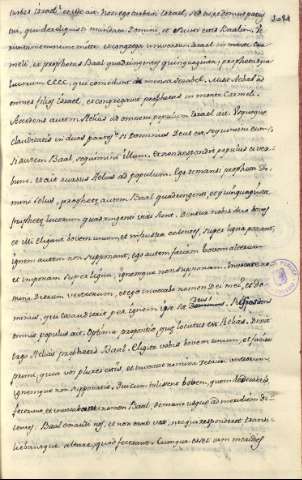 turbas Israel? et ille ait. Non ego turbavi Israel, sed tu, et domus patris
tui, qui dereliquistis mandata Domini, et
mitte, et congrega universum Israel in monte Car
meli, et prophetas Baal quadringentos quinquaginta, prophetasque
lucorum CCCC, qui comedunt de mensa Jezabel. Misit Achab ad
omnes filios Israel, et congregavit prophetas in monte Carmeli.
Accedens autem Aelias ad omnem populum Israel ait. Usquequo
claudicatis in duas partes? Si Dominus Deus est, sequimini eum;
si autem Baal, sequimini illum. Et non respondit populus ei ver
bum. et ait rursus Aelias ad populum. Ego remansi propheta Do
mini solus, prophetae autem Baal quadringenti, et quinquaginta,
prophetae lucorum quadringenti viri sunt. Dentur nobis duo boves
et illi eligant bovem unum, et in frusta caedentes, super ligna ponant,
ignem autem non supponant, ego autem faciam bovem alterum
et imponam super ligna, ignemque non supponam. Invocate no
mina Deorum vestrorum, et ego invocabo nomen Dei mei, et Do
minus, qui exaudierit per ignem ipse sit Deus. Respondens
omnis populus ait. Optima propositio, quam locutus est Aelias. Dixit
ergo Aelias prophetis Baal. Eligite vobis bovem unum, et facite
primi, quia vos plures estis, et invocate nomina Deorum vestrorum,
ignemque non supponatis. Qui cum tulissent bovem, quem
fecerunt, et invocabant nomen Baal, de mane usque ad meridiem di
centes. Baal exaudi nos, et non erat vox, nec qui responderet transi
liebantque altare, quod fecerant. Cumque esset iam meridies